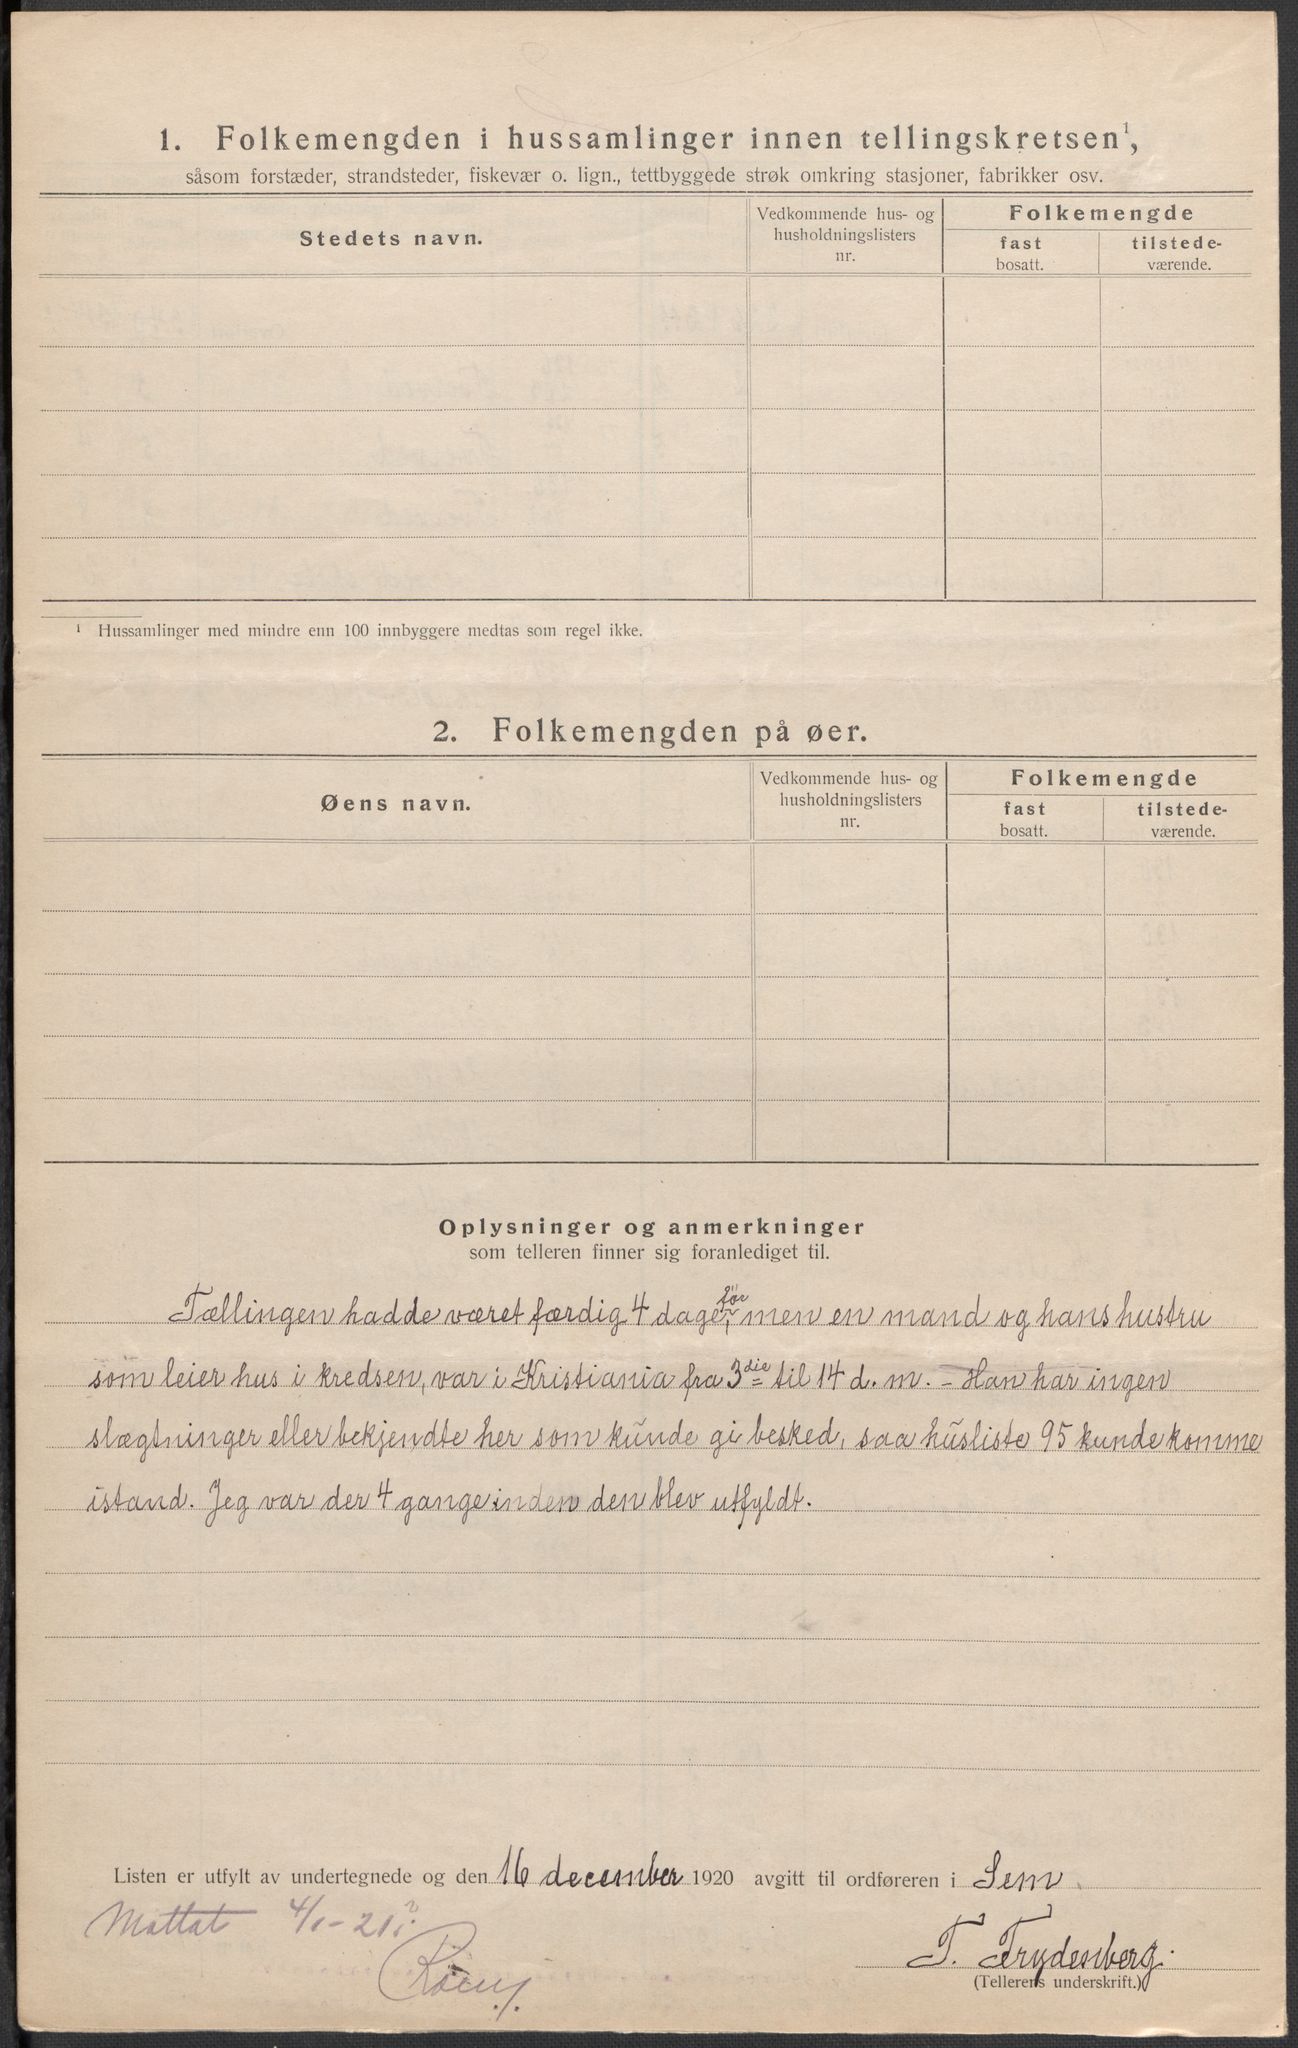 1. Folkemengden i hussamlinger innen tellingskretsen¹,
såsom forstæder, strandsteder, fiskevær o. lign., tettbyggede strøk omkring stasjoner, fabrikker osv.
Stedets navn.
Vedkommende hus- og husholdningslisters nr.
Folkemengde
fast bosatt.
tilstede-værende.
¹ Hussamlinger med mindre enn 100 innbyggere medtas som regel ikke.
2. Folkemengden på øer.
Øens navn.
Vedkommende hus- og husholdningslisters nr.
Folkemengde
fast bosatt.
tilstede-værende.
Oplysninger og anmerkninger
som telleren finner sig foranlediget til.
Tællingen hadde været færdig 4 dage før, men en mand og hans hustru
som leier hus i kredsen, var i Kristiania fra 3die til 14 d. m. – Han har ingen
slægtninger eller bekjendte her som kunde gi besked, saa husliste 95 kunde komme
istand. Jeg var der 4 gange inden den blev utfyldt.
Listen er utfylt av undertegnede og den 16 december 1920 avgitt til ordføreren i Sem.
Mottat 4/1-21
T. Frydenberg.
(Tellerens underskrift.)